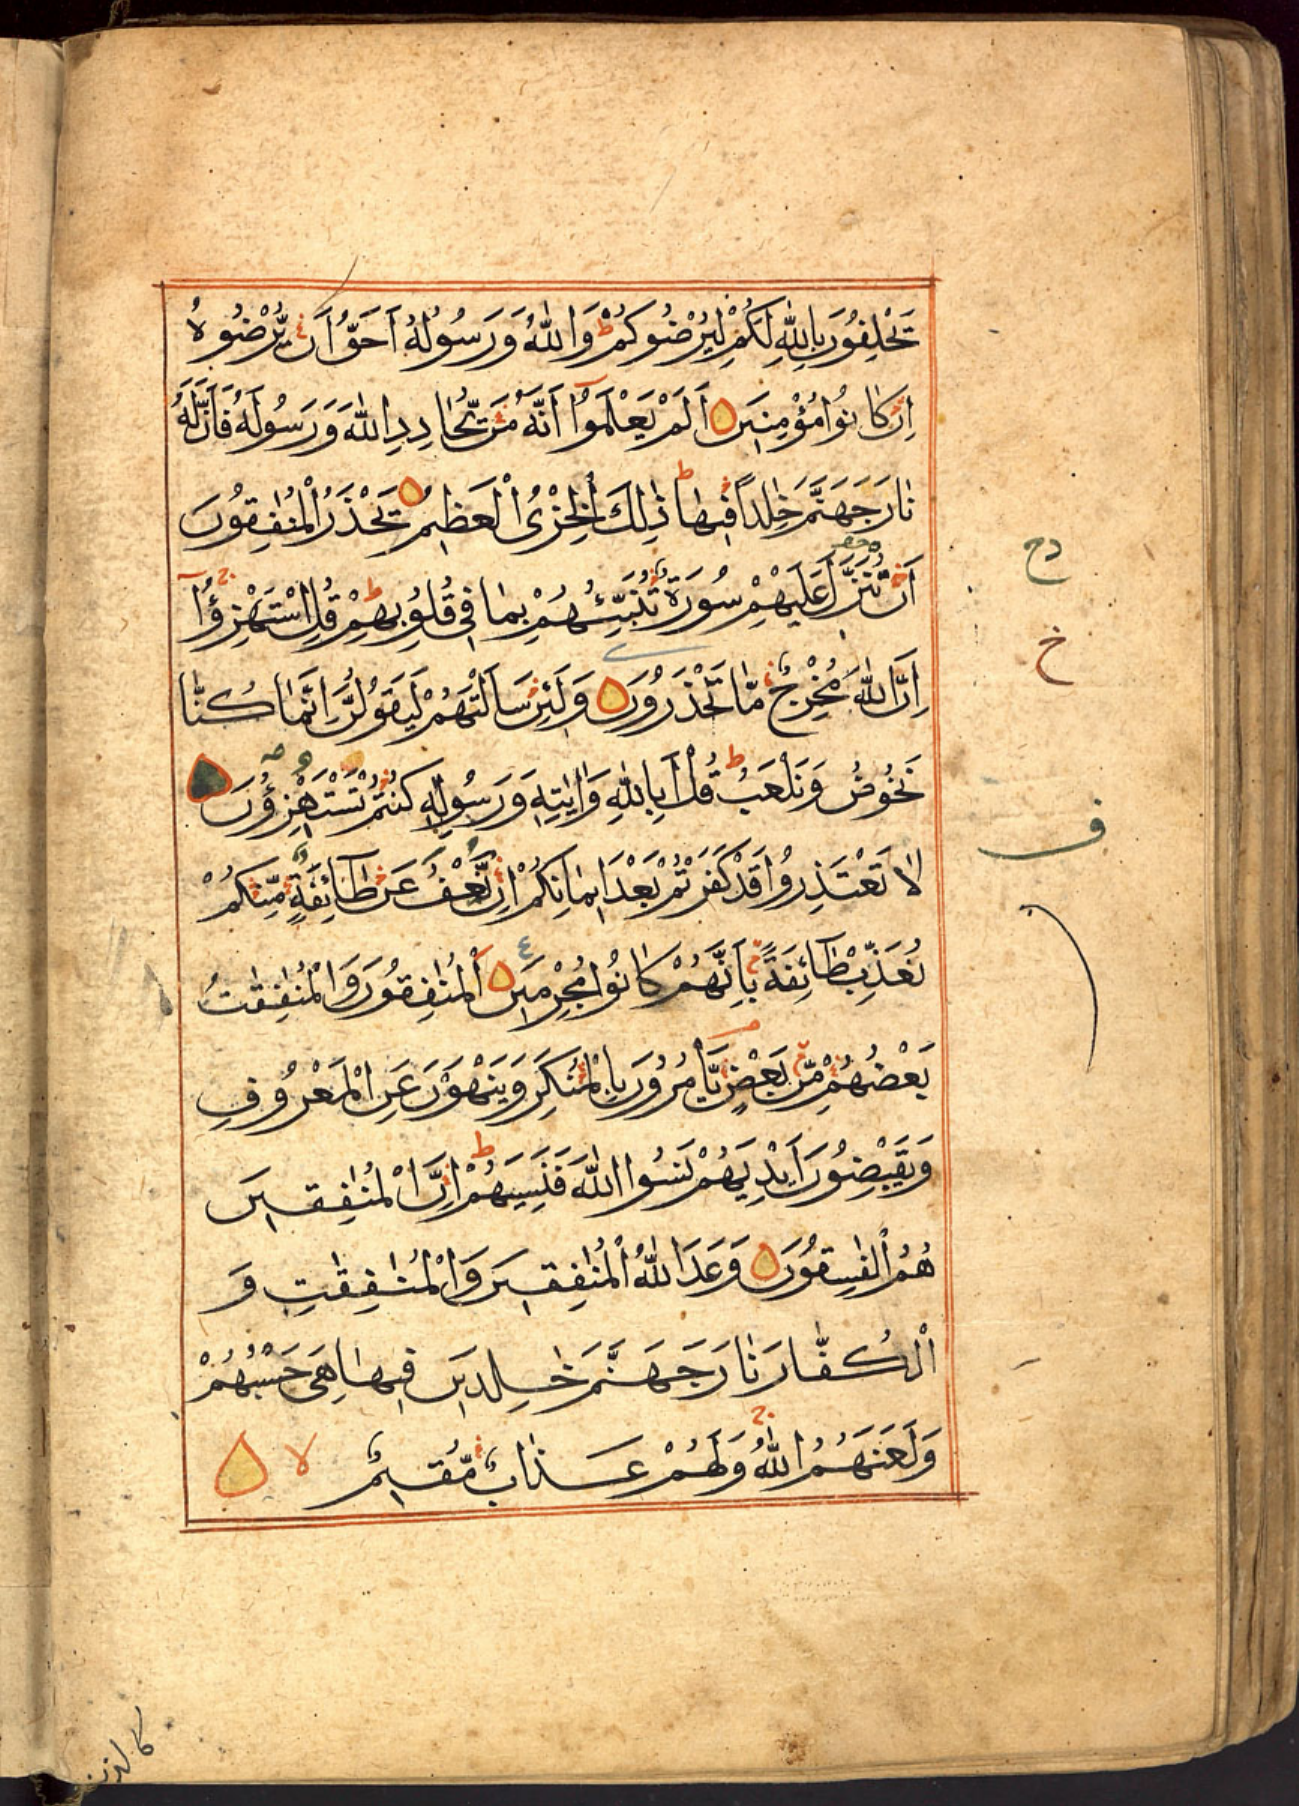 يَحْلِفُونَ بِاللّٰهِ لَكُمْ لِيُرْضُوكُمْ ط وَاللّٰهُ وَرَسُولُهُ اَحَقُّ اَنْ يُّرْضُوهُ
اِنْ كَانُوا مُؤْمِنِينَ اَلَمْ يَعْلَمُوٓا اَنَّهُ مَنْ يُّحَادِدِ اللّٰهَ وَرَسُولَهُ فَاَنَّ لَهُ
نَارَ جَهَنَّمَ خَالِدًا فِيهَا ط ذٰلِكَ الْخِزْىُ الْعَظِيمُ يَحْذَرُ الْمُنٰفِقُونَ
اَنْ تُنَزَّلَ عَلَيْهِمْ سُورَةٌ تُنَبِّئُهُمْ بِمَا فِى قُلُوبِهِمْ ط قُلِ اسْتَهْزِؤُٓا ج
اِنَّ اللّٰهَ مُخْرِجٌ مَّا تَحْذَرُونَ وَلَئِنْ سَاَلْتَهُمْ لَيَقُولُنَّ اِنَّمَا كُنَّا
نَخُوضُ وَنَلْعَبُ ط قُلْ اَبِاللّٰهِ وَاٰيٰتِهِ وَرَسُولِهِ كُنْتُمْ تَسْتَهْزِؤُنَ
لَا تَعْتَذِرُوا قَدْ كَفَرْتُمْ بَعْدَ اِيمَانِكُمْ اِنْ نَّعْفُ عَنْ طَآئِفَةٍ مِّنْكُمْ
نُعَذِّبْ طَآئِفَةً بِاَنَّهُمْ كَانُوا مُجْرِمِينَ اَلْمُنٰفِقُونَ وَالْمُنٰفِقٰتُ
بَعْضُهُمْ مِّنْ بَعْضٍ يَّاْمُرُونَ بِالْمُنْكَرِ وَيَنْهَوْنَ عَنِ الْمَعْرُوفِ
وَيَقْبِضُونَ اَيْدِيَهُمْ نَسُوا اللّٰهَ فَنَسِيَهُمْ ط اِنَّ الْمُنٰفِقِينَ
هُمُ الْفٰسِقُونَ وَعَدَ اللّٰهُ الْمُنٰفِقِينَ وَالْمُنٰفِقٰتِ وَ
الْكُفَّارَ نَارَ جَهَنَّمَ خٰلِدِينَ فِيهَا هِىَ حَسْبُهُمْ
وَلَعَنَهُمُ اللّٰهُ ج وَلَهُمْ عَذَابٌ مُّقِيمٌ لا
دح
خ
ف
كالذين